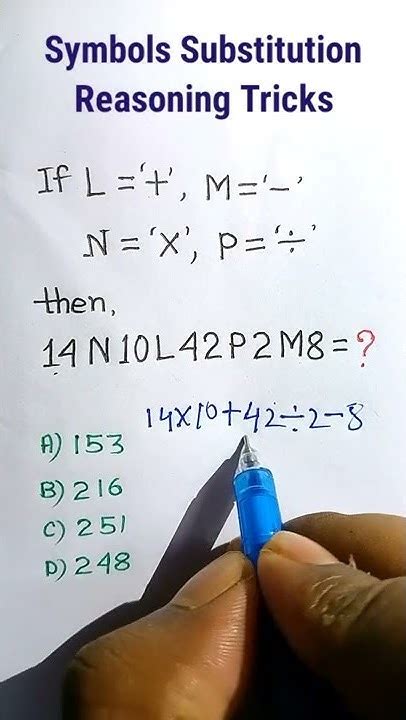 Symbols Substitution
Reasoning Tricks
If L='+', M='-'
N='x', P='÷'
then,
14N10L42P2M8=?
14x10+42÷2-8
A) 153
B) 216
C) 251
D) 248